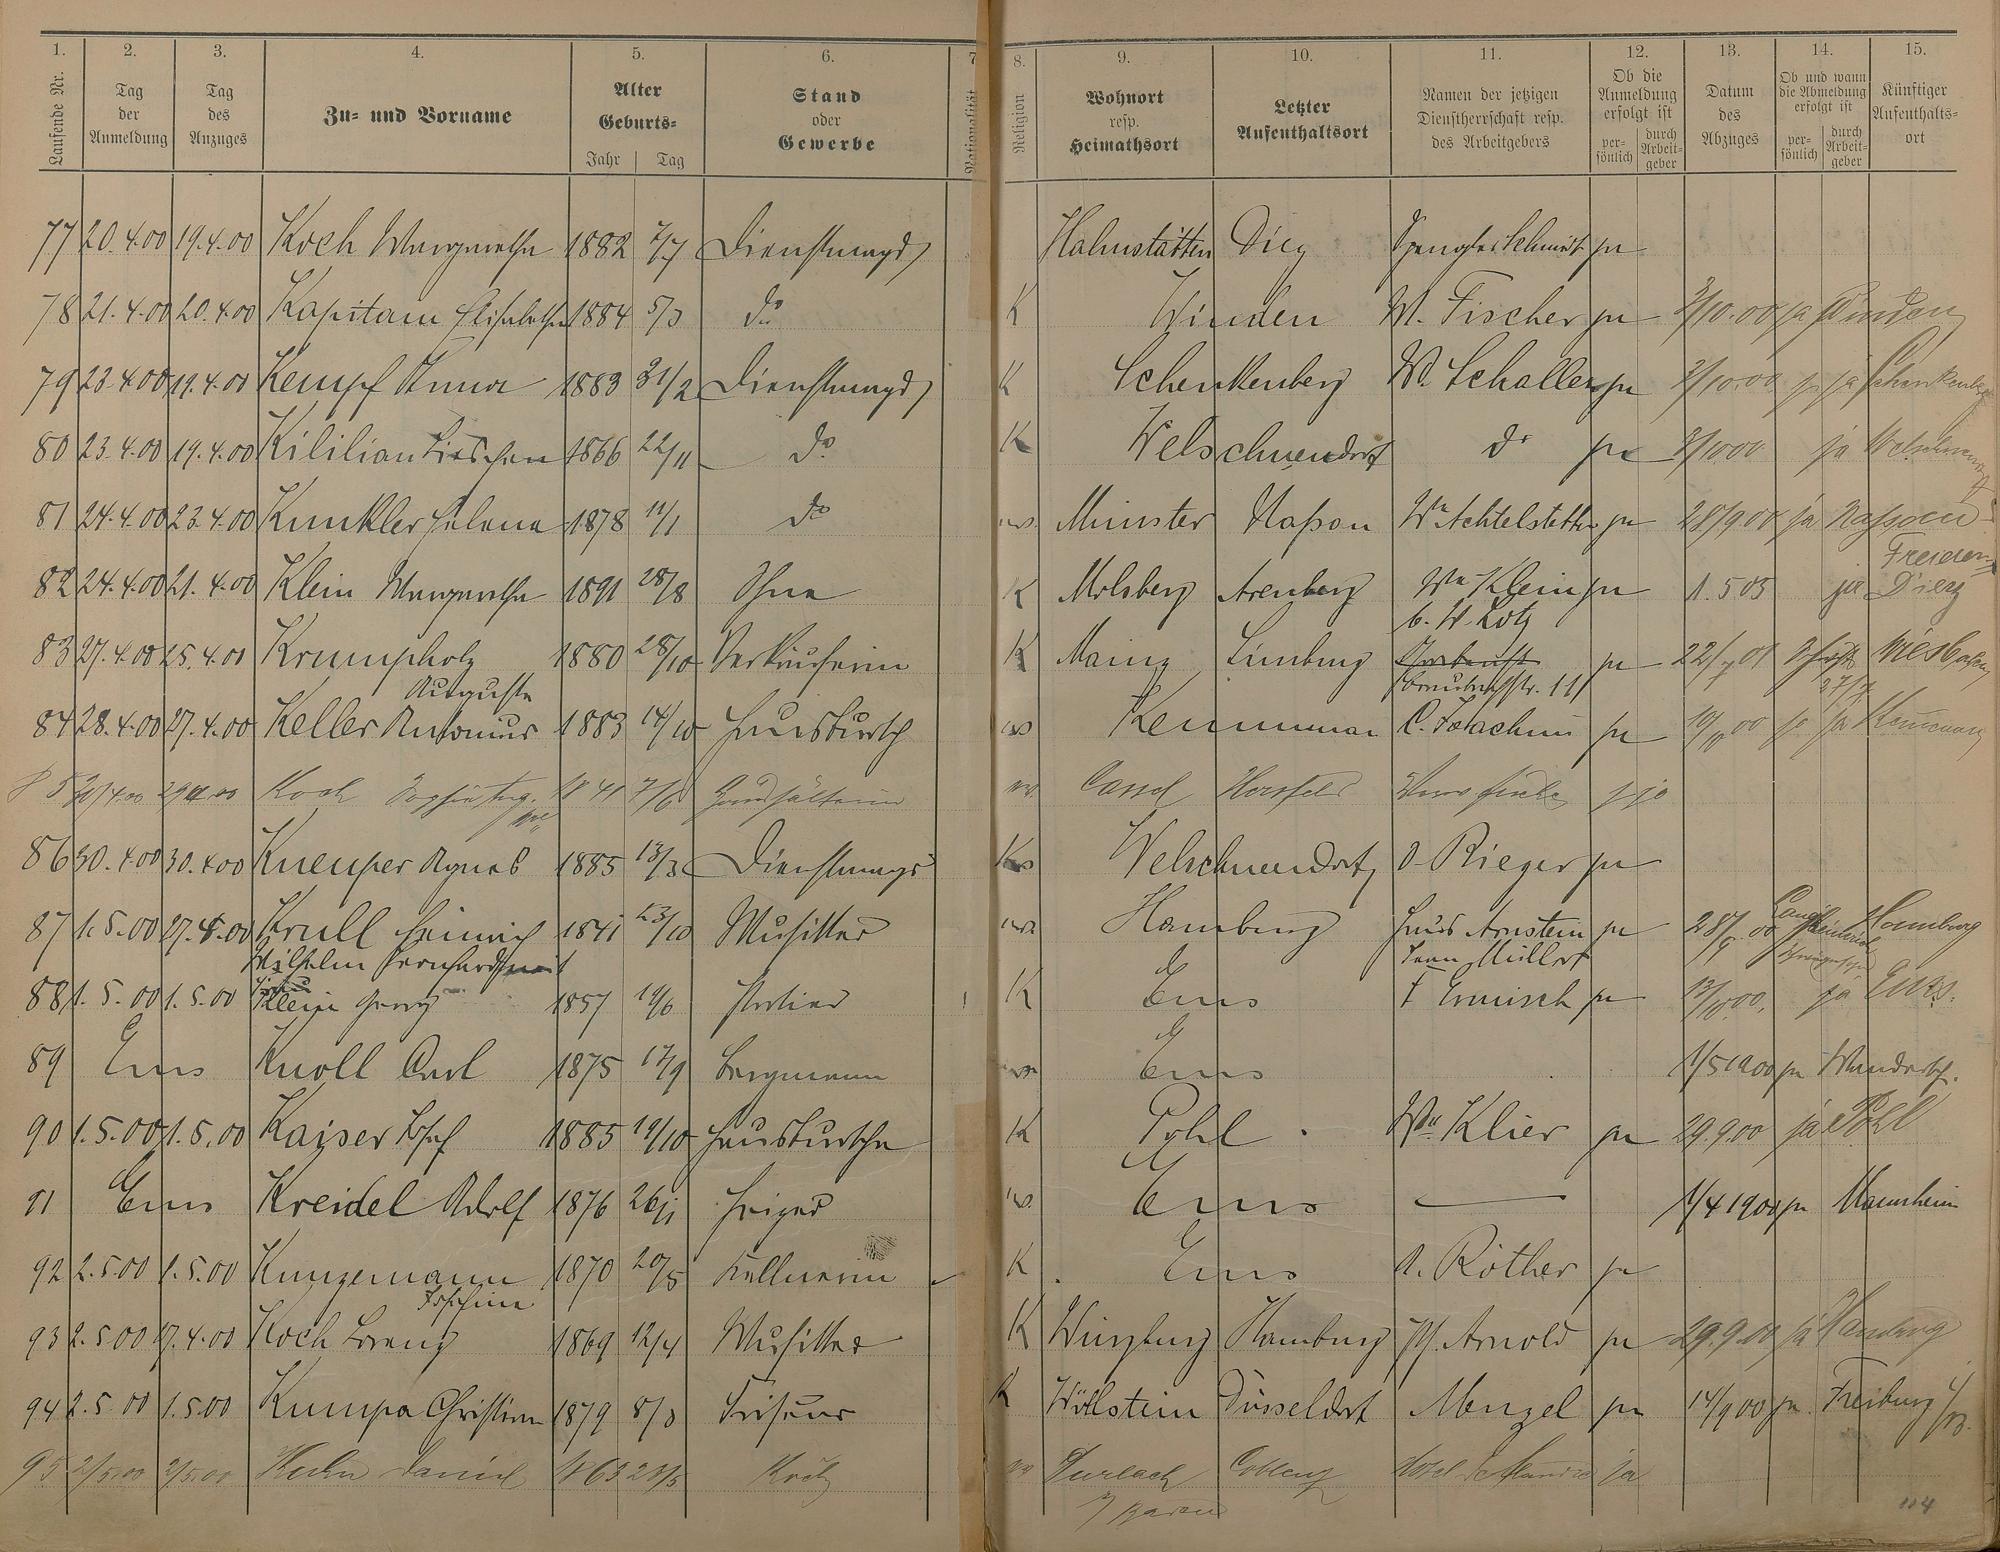 1. 2. 3. 4. 5. 6. 7 8. 9. 10. 11. 12. 13. 14. 15.
Laufende Nr. Tag der Anmeldung Tag des Anzuges Zu- und Vorname Alter Geburts- Jahr Tag Stand oder Gewerbe Nationalität Religion Wohnort resp. Heimathsort Letzter Aufenthaltsort Namen der jetzigen Dienstherrschaft resp. des Arbeitgebers Ob die Anmeldung erfolgt ist per- sönlich durch Arbeit- geber Datum des Abzuges Ob und wann die Abmeldung erfolgt ist per- sönlich durch Arbeit- geber Künftiger Aufenthalts- ort
77 20.4.00 19.4.00 Koch Margarethe 1882 7/7 Dienstmagd Hahnstätten Diez Spengler Schmidt ja
78 21.4.00 20.4.00 Kapitain Elisabetha 1884 5/3 do K Winden W. Fischer ja 3/10.00 ja Winden
79 23.4.00 19.4.00 Kempf Anna 1883 Dienstmagd K Schenkenberg W. Schaller ja 3/10.00 ja Schenkenberg
80 23.4.00 19.4.00 Kililian Lieschen 1866 22/11 do K Welschneudorf do ja 3/10 00 ja Welschneudorf
81 24.4.00 23.4.00 Kunkler Helena 1878 11/1 do ev. Münster Naßau We Achtelstetter ja 28/9 00 ja Naßau
82 24.4.00 21.4.00 Klein Margarethe 1891 28/8 Ohne K Molsberg Arenberg We Klein ja 1.5 03 ja Freien Diez
b. W. Lotz
83 27.4.00 25.4.00 Krumpholz 1880 28/10 Verkäuferin K Mainz Limburg ja 22/7 01 Wiesbaden
Auguste 27/7
84 28.4.00 27.4.00 Keller Antonius 1883 14/10 Hausbursch ev Kemmenau C. Joachim ja 00 ja Kemmenau
85 30/4.00 29.4.00 Koch 1841 7/6 Haushälterin ev. Cassel Hersfeld ja
86 30.4.00 30.4.00 Kneuper Agnes 1885 13/3 Dienstmagd K Welschneudorf O. Rieger ja
87 1.5.00 27.4.00 Krull Heinrich 1841 23/10 Musiker ev. Hamburg Haus Arnstein ja 28/9 00 Hamburg
Wilhelm Bernhard Jean Müller
88 1.5.00 1.5.00 Klein Georg 1857 19/6 Portier K Ems F Ermisch ja 13/10 00. ja Ems.
89 Ems Knoll Carl 1875 17/9 Bergmann ev. Ems 1/5 1900 ja Wandersch.
90 1.5.00 1.5.00 Kaiser Josef 1885 19/10 Hausbursche K Pohl We Klier ja 29.9.00 ja Pohl
91 Ems Kreidel Adolf 1876 26/1 Heizer ev. Ems 1/4 1900 ja Mannheim
92 2.5.00 1.5.00 Kunzemann 1870 20/5 Kellnerin K Ems A. Röther ja
Josefine
93 2.5.00 17.4.00 Koch Lorenz 1869 12/4 Musiker K Würzburg Hamburg Ph. Arnold ja 29.9.00 ja Hamburg
94 2.5 00 1.5.00 Kumpa Christian 1879 8/3 Friseur K Wöllstein Düsseldorf Menzel ja 14/9 00 ja Freiburg i/B.
95 2/5.00 2/5.00 Daniel 1863 23/5 ev Durlach Coblenz Hotel ja
i/ Baden
104